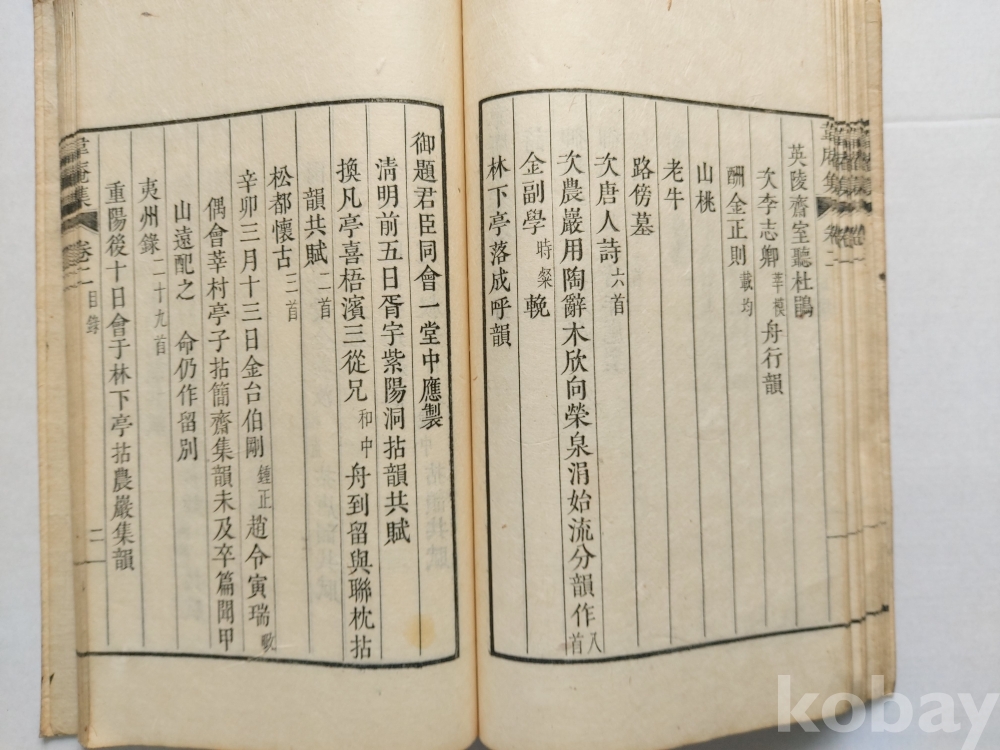 英陵齋室聽杜鵑
次李志卿 莘模 舟行韻
酬金正則 載均
山桃
老牛
路傍墓
次唐人詩 六首
次農巖用陶辭木欣向榮泉涓始流分韻作 八首
金副學 時粲 輓
林下亭落成呼韻
御題君臣同會一堂中應製
淸明前五日胥宇紫陽洞拈韻共賦
換凡亭喜梧濱三從兄 和中 舟到留與聯枕拈
韻共賦 二首
松都懷古 三首
辛卯三月十三日金台伯剛 鍾正 趙令寅瑞 歌
偶會莘村亭子拈簡齋集韻未及卒篇聞甲
山遠配之 命仍作留別
夷州錄 二十九首
重陽後十日會于林下亭拈農巖集韻
集 卷二 目錄 二
kobay